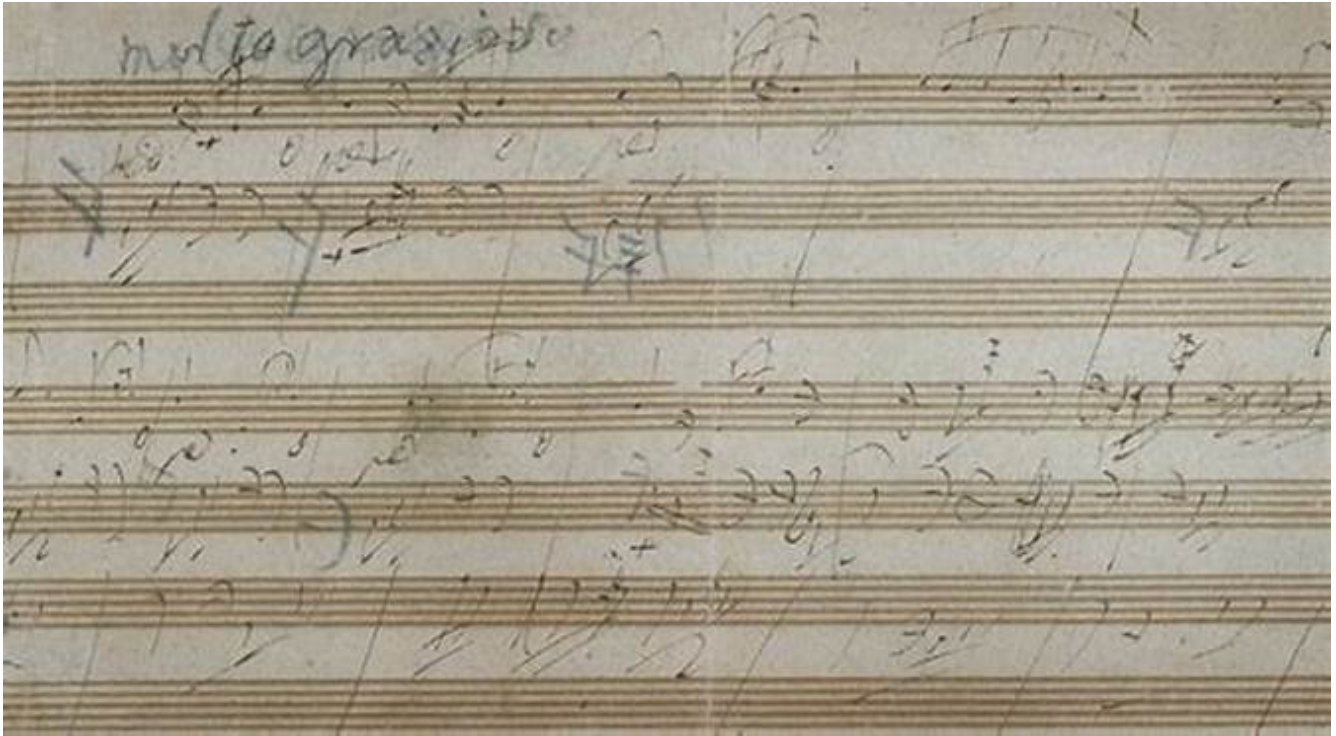 molto grazioso